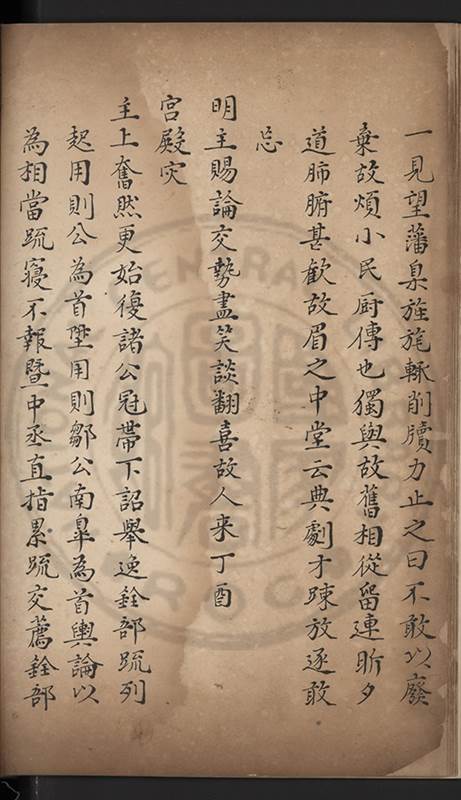 一見望藩臬旌旄輒削牘力止之曰不敢以廢
棄故煩小民厨傳也獨與故舊相從留連昕夕
道肺腑甚歡故眉之中堂云典劇才踈放逐敢
忘
明主賜論交勢盡笑談翻喜故人来丁酉
宫殿灾
主上奮然更始復諸公冠帶下詔舉逸銓部疏列
起用則公為首陞用則鄒公南臯為首輿論以
為相當疏寢不報暨中丞直指累疏交薦銓部